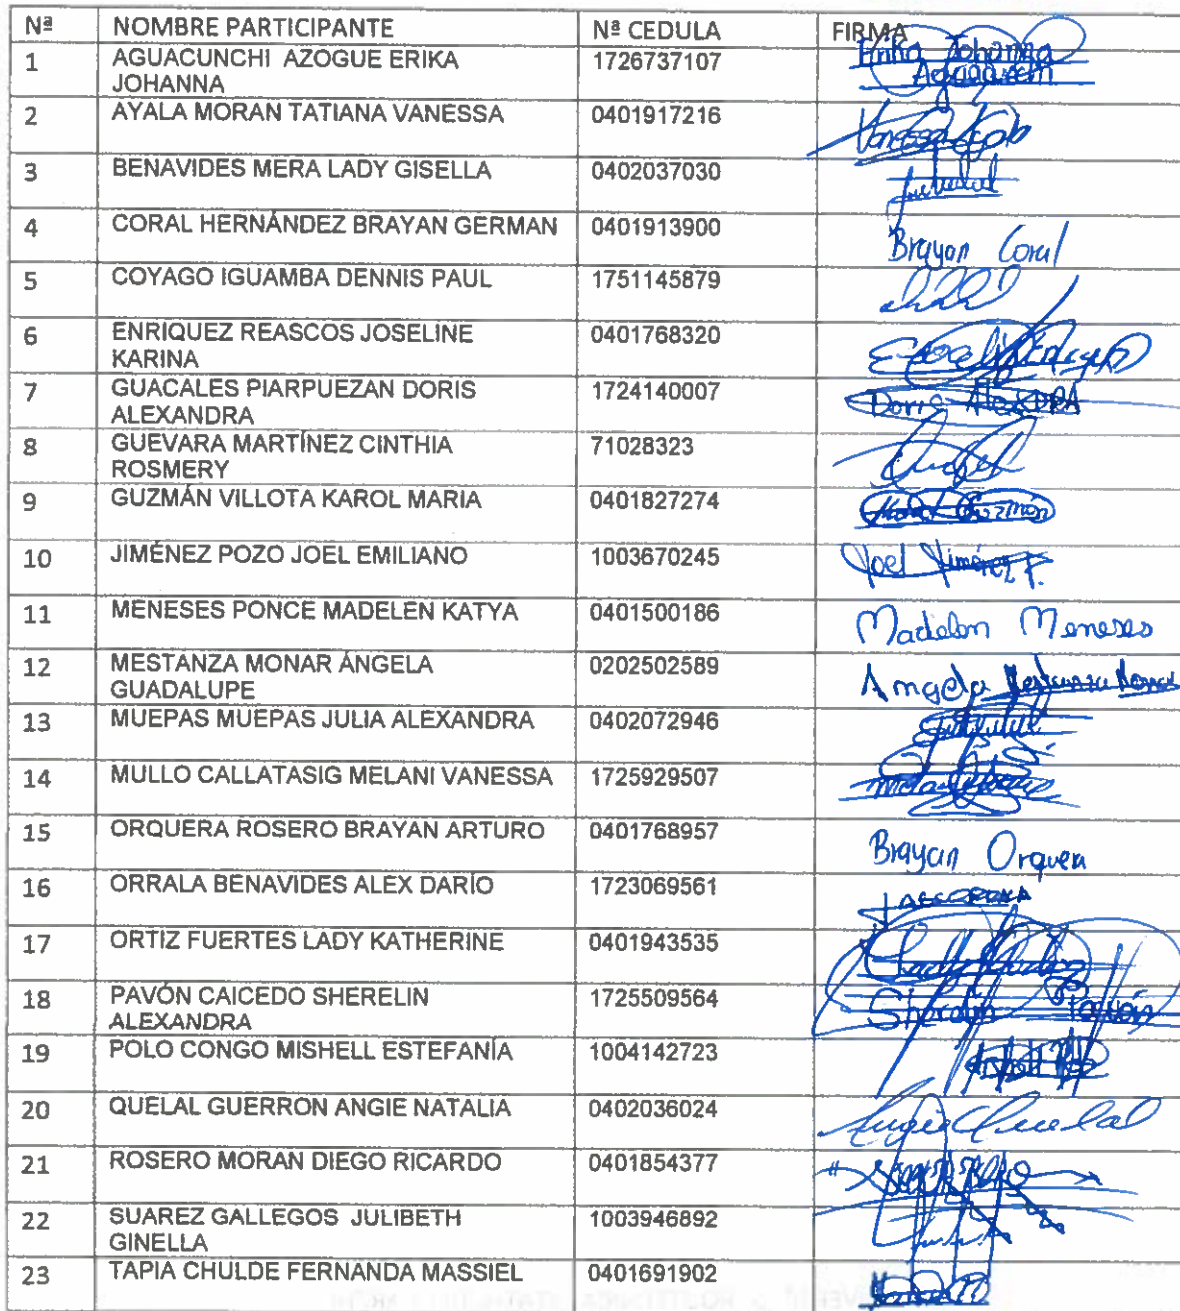 Nª NOMBRE PARTICIPANTE Nª CEDULA FIRMA
1 AGUACUNCHI AZOGUE ERIKA 1726737107 Erika Johanna
JOHANNA
2 AYALA MORAN TATIANA VANESSA 0401917216 Vanessa Ayala
3 BENAVIDES MERA LADY GISELLA 0402037030
4 CORAL HERNÁNDEZ BRAYAN GERMAN 0401913900 Brayan Coral
5 COYAGO IGUAMBA DENNIS PAUL 1751145879
6 ENRIQUEZ REASCOS JOSELINE 0401768320
KARINA
7 GUACALES PIARPUEZAN DORIS 1724140007 Doris AlexDRA
ALEXANDRA
8 GUEVARA MARTÍNEZ CINTHIA 71028323
ROSMERY
9 GUZMÁN VILLOTA KAROL MARIA 0401827274 Karol Guzmán
10 JIMÉNEZ POZO JOEL EMILIANO 1003670245 Joel Jiménez P.
11 MENESES PONCE MADELEN KATYA 0401500186 Madelen Meneses
12 MESTANZA MONAR ÁNGELA 0202502589 Angela Mestanza Monar
GUADALUPE
13 MUEPAS MUEPAS JULIA ALEXANDRA 0402072946
14 MULLO CALLATASIG MELANI VANESSA 1725929507
15 ORQUERA ROSERO BRAYAN ARTURO 0401768957 Brayan Orquera
16 ORRALA BENAVIDES ALEX DARÍO 1723069561
17 ORTIZ FUERTES LADY KATHERINE 0401943535
18 PAVÓN CAICEDO SHERELIN 1725509564 Sherelin Pavón
ALEXANDRA
19 POLO CONGO MISHELL ESTEFANÍA 1004142723
20 QUELAL GUERRON ANGIE NATALIA 0402036024 Angie Quelal
21 ROSERO MORAN DIEGO RICARDO 0401854377
22 SUAREZ GALLEGOS JULIBETH 1003946892
GINELLA
23 TAPIA CHULDE FERNANDA MASSIEL 0401691902